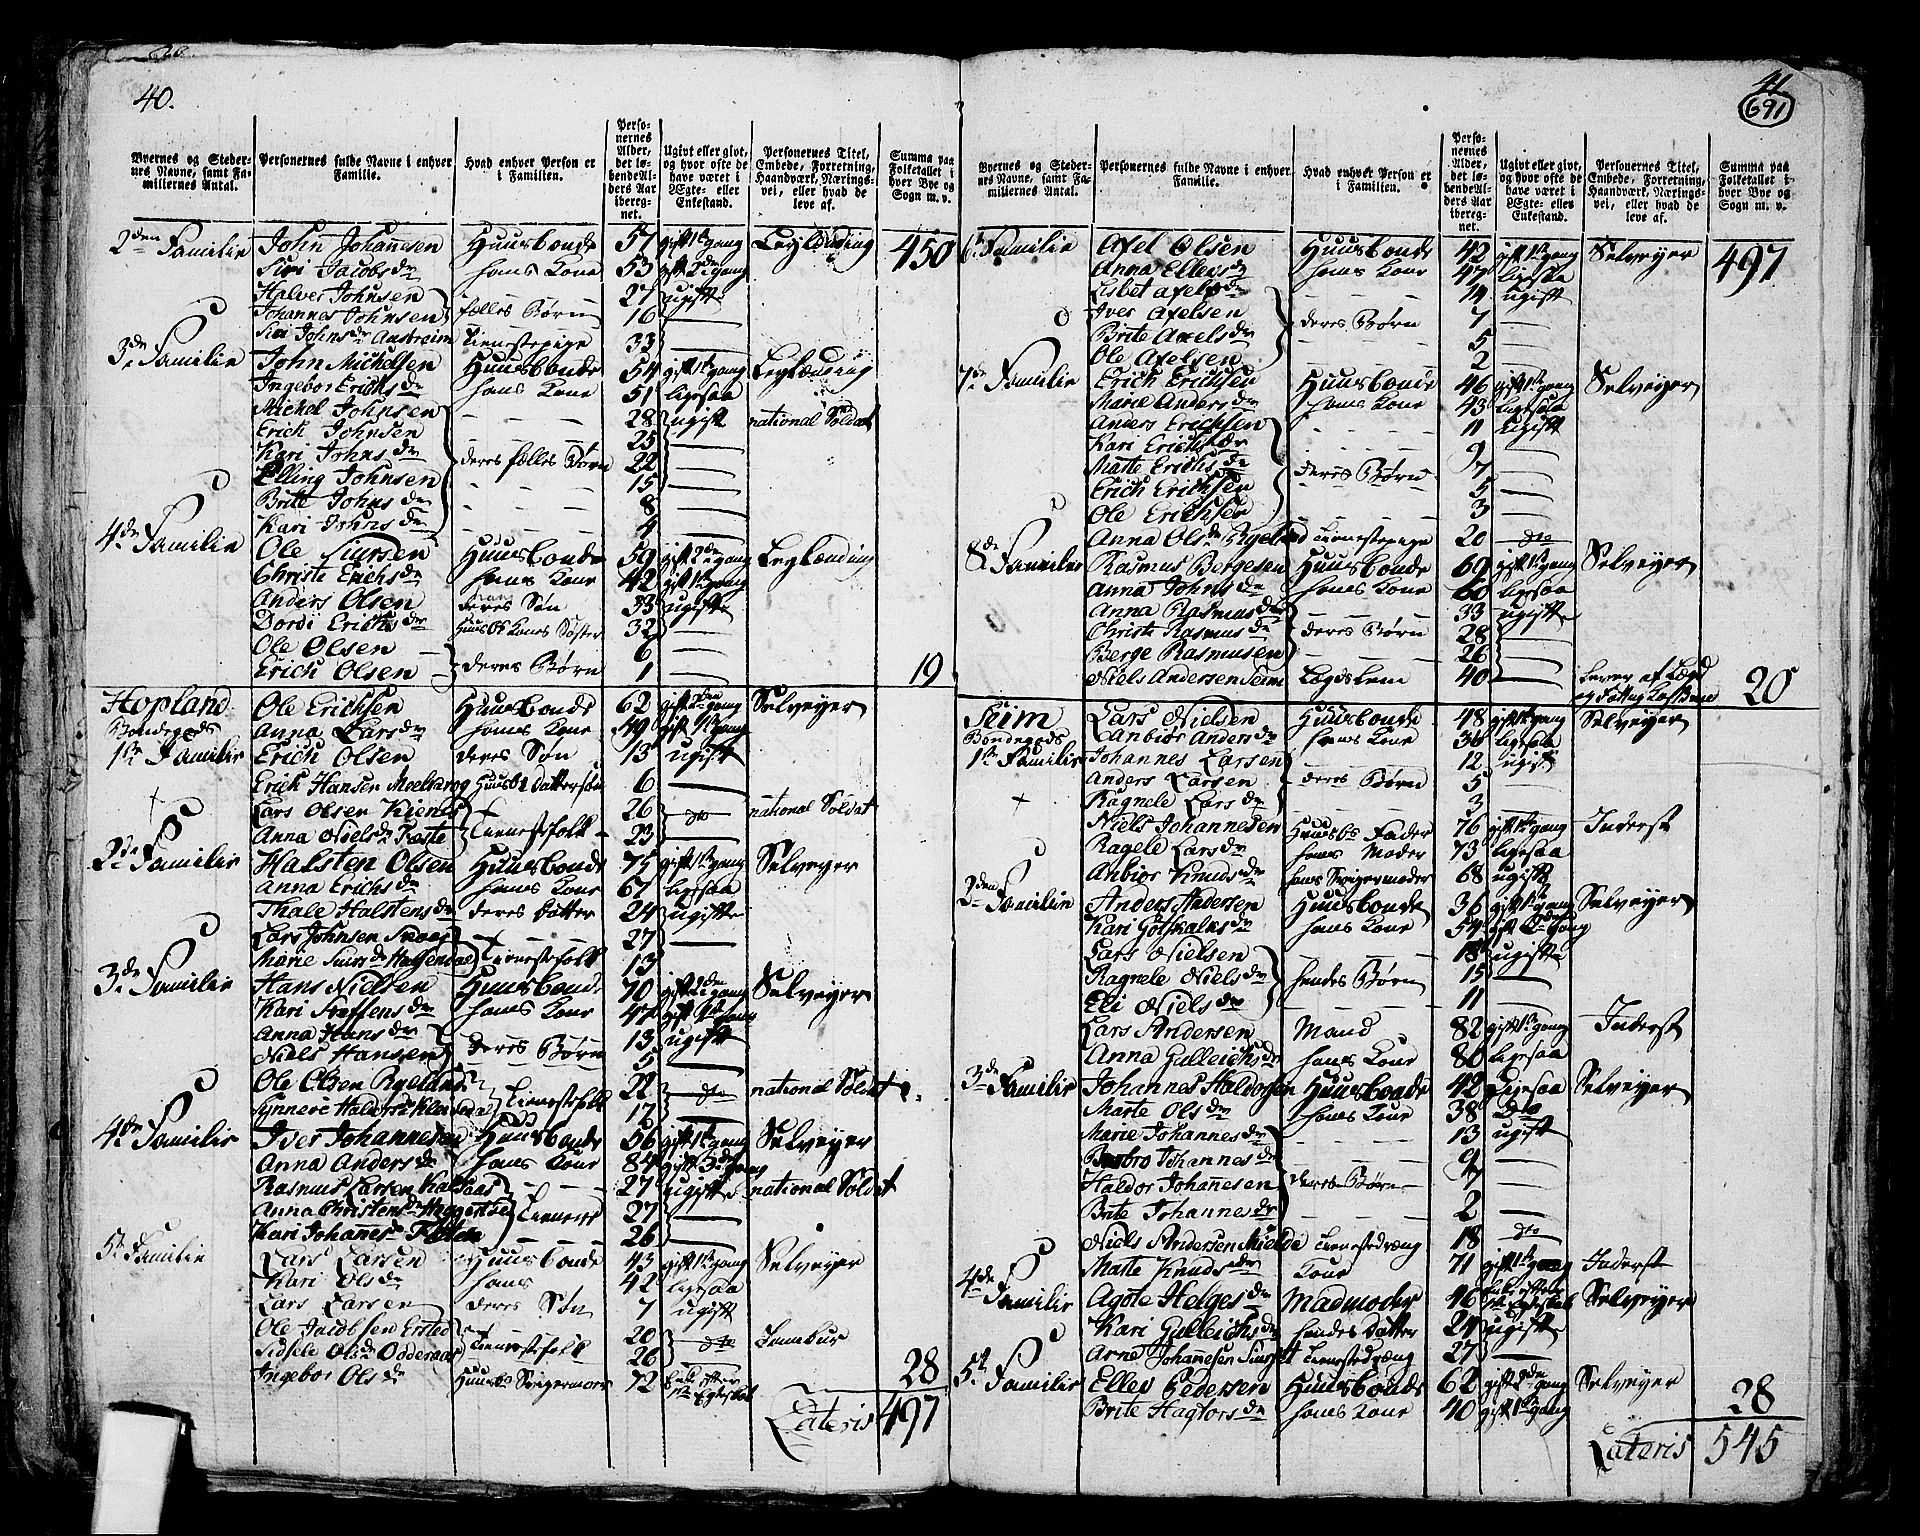 40.
Byernes og Stedernes Navne, samt Familiernes Antal.
Personernes fulde Navne i enhver Familie.
Hvad enhver Person er i Familien.
Personernes Alder, det løbende Alders Aar iberegnet.
Ugivt eller givt, og hvor ofte de have været i Ægte- eller Enkestand.
Personernes Titel, Embede, Forretning, Haandværk, Næringsvei, eller hvad de leve af.
Summa paa Folketallet i hver Bye og Sogn m. v.
2den Familie John Johannesen Huusbonde 57 gift 1te gang Leylænding 450
Siri Jacobsdr hans Kone 53 gift 2de gang
Halver Johnsen 27 ugift
Johannes Johnsen fælles Børn 16 —
Siri Johnsdr Austreim Tienestepige 33 —
3de Familie John Michelsen Huusbonde 54 gift 1te gang Leylænding
Ingebor Erichsdr hans Kone 51 ligesaa
Michel Johnsen 28 ugift national Soldat
Erich Johnsen 25 —
Kari Johnsdr deres fælles Børn 22 —
Elling Johnsen 15 —
Brite Johnsdr 8 —
Kari Johnsdr 4 —
4de Familie Ole Siursen Huusbonde 59 gift 2de gang Leylænding
Christi Erichsdr hans Kone 42 gift 1te gang
Anders Olsen deres Søn 33 ugift
Dordi Erichsdr Huusb. Kones Søster 32 —
Ole Olsen 6 —
Erich Olsen deres Børn 1 — 19
Hopland Ole Erichsen Huusbonde 62 gift 2den gang Selveyer
Bondegods Anna Larsdr hans Kone 49 gift 1te gang
1te Familie Erich Olsen deres Søn 13 ugift
Erich Hansen Meelkrog Huusb. Dattersøn 6 —
Lars Olsen 26 do national Soldat
Anna Nielsdr Tienestefolk 23 —
2de Familie Halsten Olsen Huusbonde 75 gift 1te gang Selveyer
Anna Erichsdr hans Kone 67 ligesaa
Thale Halstensdr deres Datter 24 ugift
Lars Johnsen 27 —
Marie Siursdr Tienestefolk 13
3de Familie Hans Nielsen Huusbonde 70 gift 2de gang Selveyer
Kari Steffensdr hans Kone 47 gift 1te gang
Anna Hansdr 13 ugift
Niels Hansen deres Børn 5 —
Ole Olsen 22 do national Soldat
Synneve Haldorsdr Tienestefolk 17 —
4de Familie Iver Johannesen Huusbonde 56 gift 1te gang Selveyer
Anna Andersdr hans Kone 84 gift 3de gang
Rasmus Larsen Kalsaas 27 ugift national Soldat
Anna Christensdr Tienere 27 —
Kari Johanesdr 26 —
5te Familie Lars Larsen Huusbonde 43 gift 1te gang Selveyer
Kari Olsdr hans 42 ligesaa
Lars Larsen deres Søn 7 ugift
Ole Jacobsen 20 do Tambur
Sidsele Olsdr Tienestefolk 26 —
Ingebor Olsdr Huusb. Svigermoer 72 Enke efter 1te Egteskab 28
Lateris 497
41
691
Byernes og Stedernes Navne, samt Familiernes Antal.
Personernes fulde Navne i enhver Familie.
Hvad enhver Person er i Familien.
Personernes Alder, det løbende Alders Aar iberegnet.
Ugivt eller givt, og hvor ofte de have været i Ægte- eller Enkestand.
Personernes Titel, Embede, Forretning, Haandværk, Næringsvei, eller hvad de leve af.
Summa paa Folketallet i hver Bye og Sogn m. v.
6te Familie Axel Olsen Huusbonde 42 gift 1te gang Selveyer 497
Anna Ellersdr hans Kone 47 ligesaa
Lisbet Axelsdr 14 ugift
Iver Axelsen deres Børn 7 —
Brite Axelsdr 5 —
Ole Axelsen 2 —
7de Familie Erich Erichsen Huusbonde 46 gift 1te gang Selveyer
Marie Andersdr hans Kone 43 ligesaa
Anders Erichsen 11 ugift
Kari Erichsdr 9 —
Marte Erichsdr deres Børn 7 —
Erich Erichsen 5 —
Ole Erichsen 3 —
Anna Olsdr Rye Tienestepige 20 do
8de Familie Rasmus Bergesen Huusbonde 69 gift 1te gang Selveyer
Anna Johnsdr hans Kone 60 ligesaa
Anna Rasmusdr 33 ugift
Christi Rasmusdr deres Børn 28 —
Berge Rasmusen 26 —
Niels Andersen Seim Lægdslem 40 — Lever af Lægd og Fattig Kassen 20
Seim Lars Nielsen Huusbonde 48 gift 1te gang Selveyer
Bondegods Anbiør Andersdr hans Kone 36 ligesaa
1te Familie Johannes Larsen 12 ugift
Anders Larsen deres Børn 5 —
Ragnele Larsdr 3 —
Niels Johannesen Huusbs Fader 76 gift 1te gang Inderst
Ragele Larsdr hans Moder 73 ligesaa
Anbiør Knudsdr hans Svigermoder 68 ugift
2den Familie Anders Andersen Huusbonde 36 gift 1te gang Selveyer
Kari Gotskalksdr hans Kone 54 gift 2den gang
Lars Nielsen 18 ugift
Ragnele Nielsdr hendes Børn 15 —
Eli Nielsdr 11 —
Lars Andersen Mand 82 gift 1te gang Inderst
Anna Gulleichsdr hans Kone 80 ligesaa
3de Familie Johannes Haldorsen Huusbonde 42 Ligesaa Selveyer
Marte Olsdr hans Kone 38 do
Marie Johannesdr 13 ugift
Johannesdr 9 —
Haldor Johannesen deres Børn 4 —
Brite Johannesdr 2 —
Niels Andersen Mielde Tienestedræng 18 do
Matte Knudsdr Kone 71 gift 1te gang Inderst
4de Familie Agote Helgesdr Madmoder 46 Enke efter 1te Egteskab Selveyer
Kari Gulleichsdr hendes Datter 24 ugift
Arne Johannesen Tienestedræng 27 —
5te Familie Ellev Pedersen Huusbonde 62 gift 2de gang Selveyer
Brite Hagtorsdr hans Kone 40 gift 1te gang 28
Lateris 545